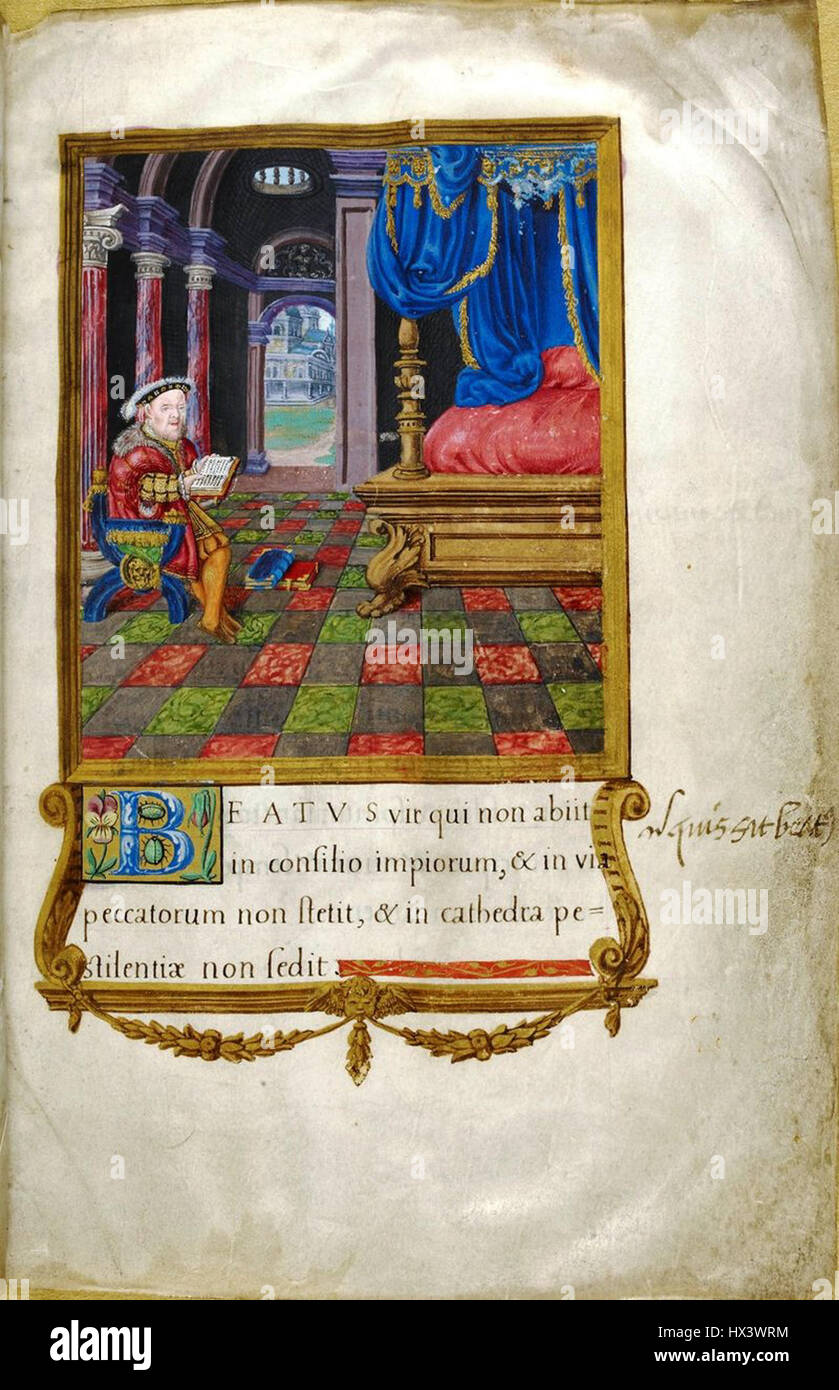 BEATVS vir qui non abiit=
in conſilio impiorum, & in via
peccatorum non ſtetit, & in cathedra pe=
ſtilentiæ non ſedit.
quis sit beat
alamy
alamy
Image ID: HX3WRM
www.alamy.com